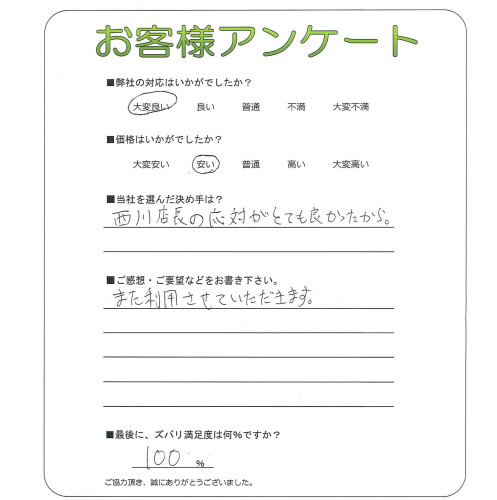 お客様アンケート
■弊社の対応はいかがでしたか？
大変良い 良い 普通 不満 大変不満
■価格はいかがでしたか？
大変安い 安い 普通 高い 大変高い
■当社を選んだ決め手は？
西川店長の応対がとても良かったから。
■ご感想・ご要望などをお書き下さい。
また利用させていただきます。
■最後に、ズバリ満足度は何%ですか？
100 %
ご協力頂き、誠にありがとうございました。